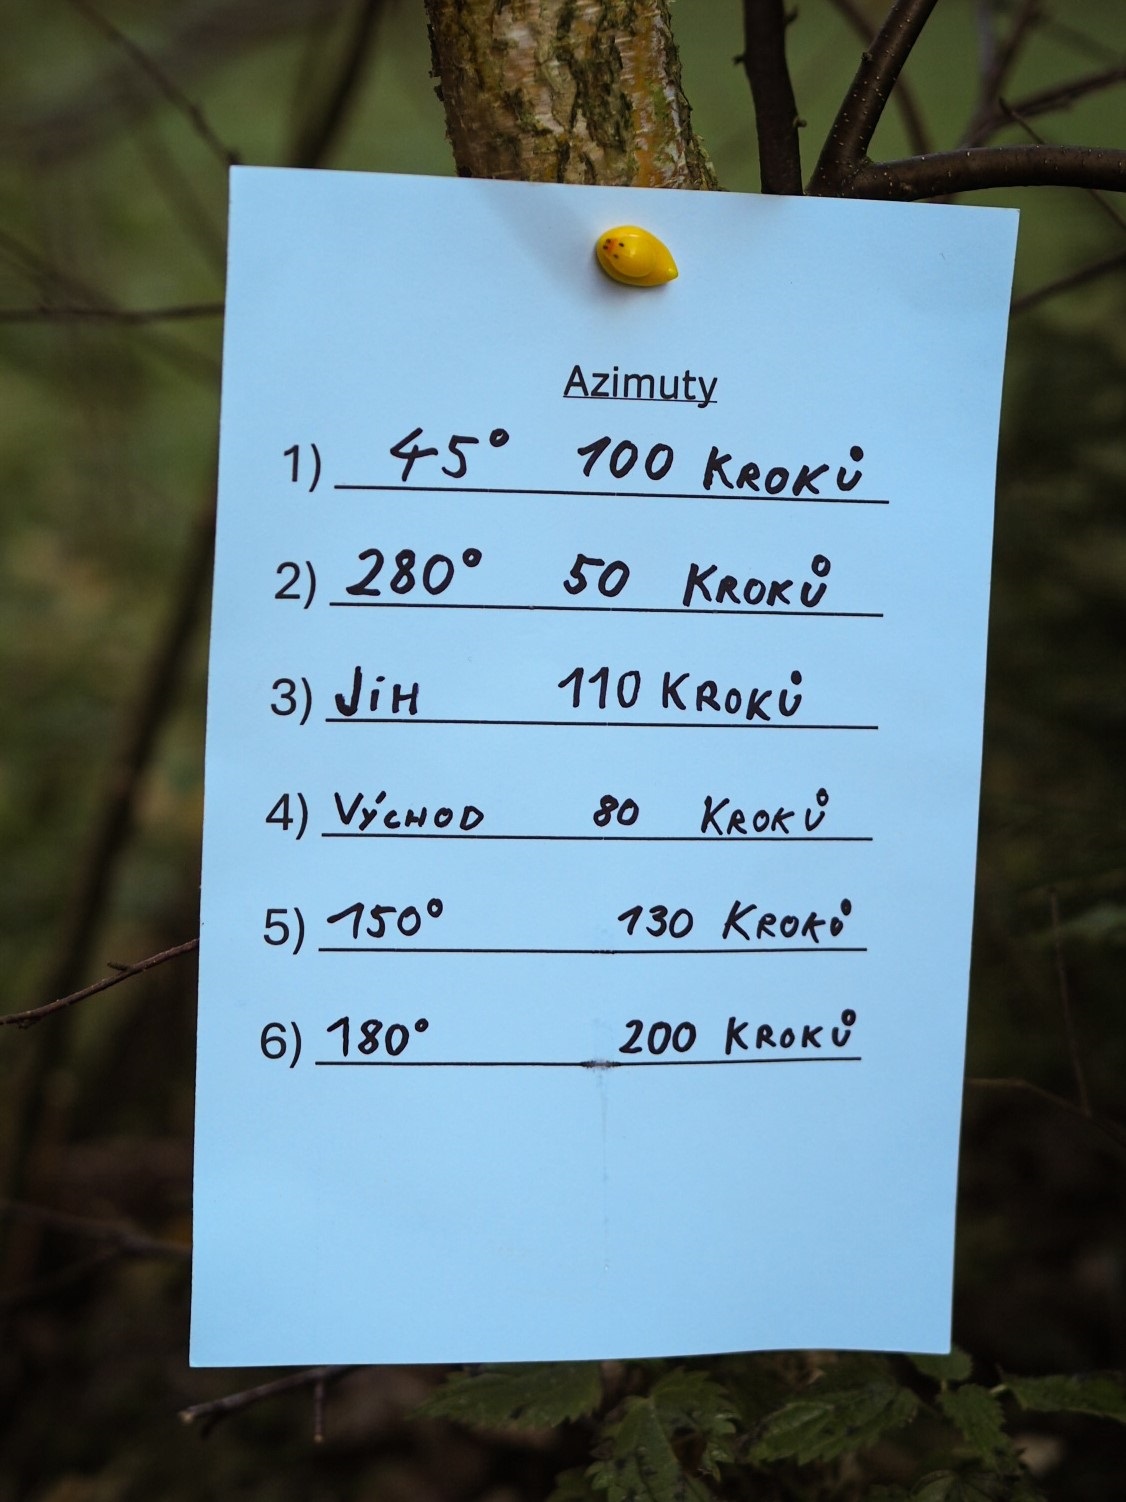 Azimuty
1) 45° 100 KROKŮ
2) 280° 50 KROKŮ
3) JIH 110 KROKŮ
4) VÝCHOD 80 KROKŮ
5) 150° 130 KROKŮ
6) 180° 200 KROKŮ